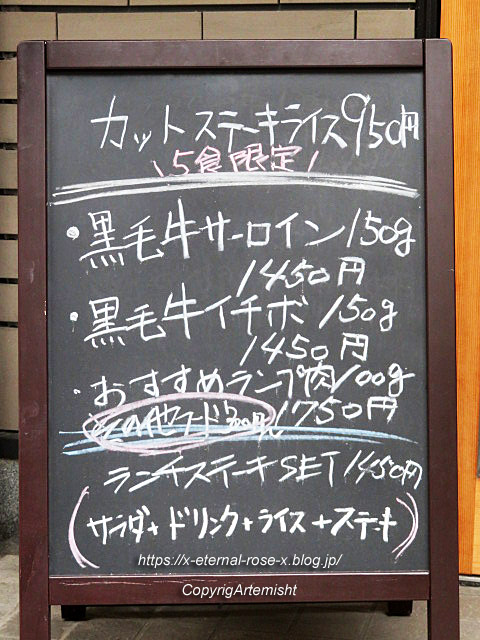 カットステーキライス950円
\5食限定/
・黒毛牛サーロイン150g
1450円
・黒毛牛イチボ150g
1450円
・おすすめランプ肉100g
その他フード 1750円
ランチステーキSET1450円
(サラダ+ドリンク+ライス+ステーキ)
https://x-eternal-rose-x.blog.jp/
CopyrigArtemisht